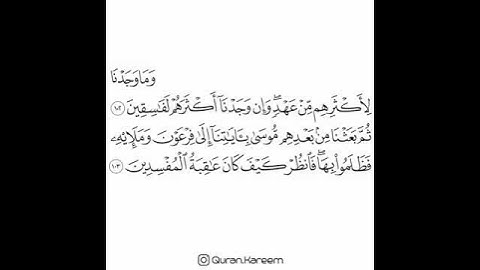 وَمَا وَجَدْنَا
لِأَكْثَرِهِم مِّنْ عَهْدٍ ۖ وَإِن وَجَدْنَآ أَكْثَرَهُمْ لَفَـٰسِقِينَ ١٠٢
ثُمَّ بَعَثْنَا مِنۢ بَعْدِهِم مُّوسَىٰ بِـَٔايَـٰتِنَآ إِلَىٰ فِرْعَوْنَ وَمَلَإِي۟هِۦ
فَظَلَمُوا۟ بِهَا ۖ فَٱنظُرْ كَيْفَ كَانَ عَـٰقِبَةُ ٱلْمُفْسِدِينَ ١٠٣
Quran.Kareem